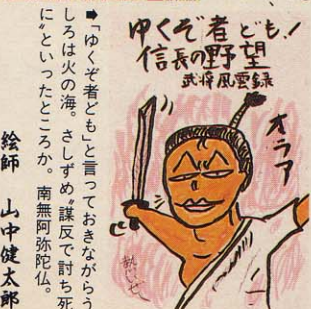 ゆくぞ者ども!
信長の野望
武将風雲録
オラア
➡「ゆくぞ者ども」と言っておきながらう
しろは火の海。さしずめ〝謀反で討ち死
に〟といったところか。南無阿弥陀仏。
絵師 山中健太郎